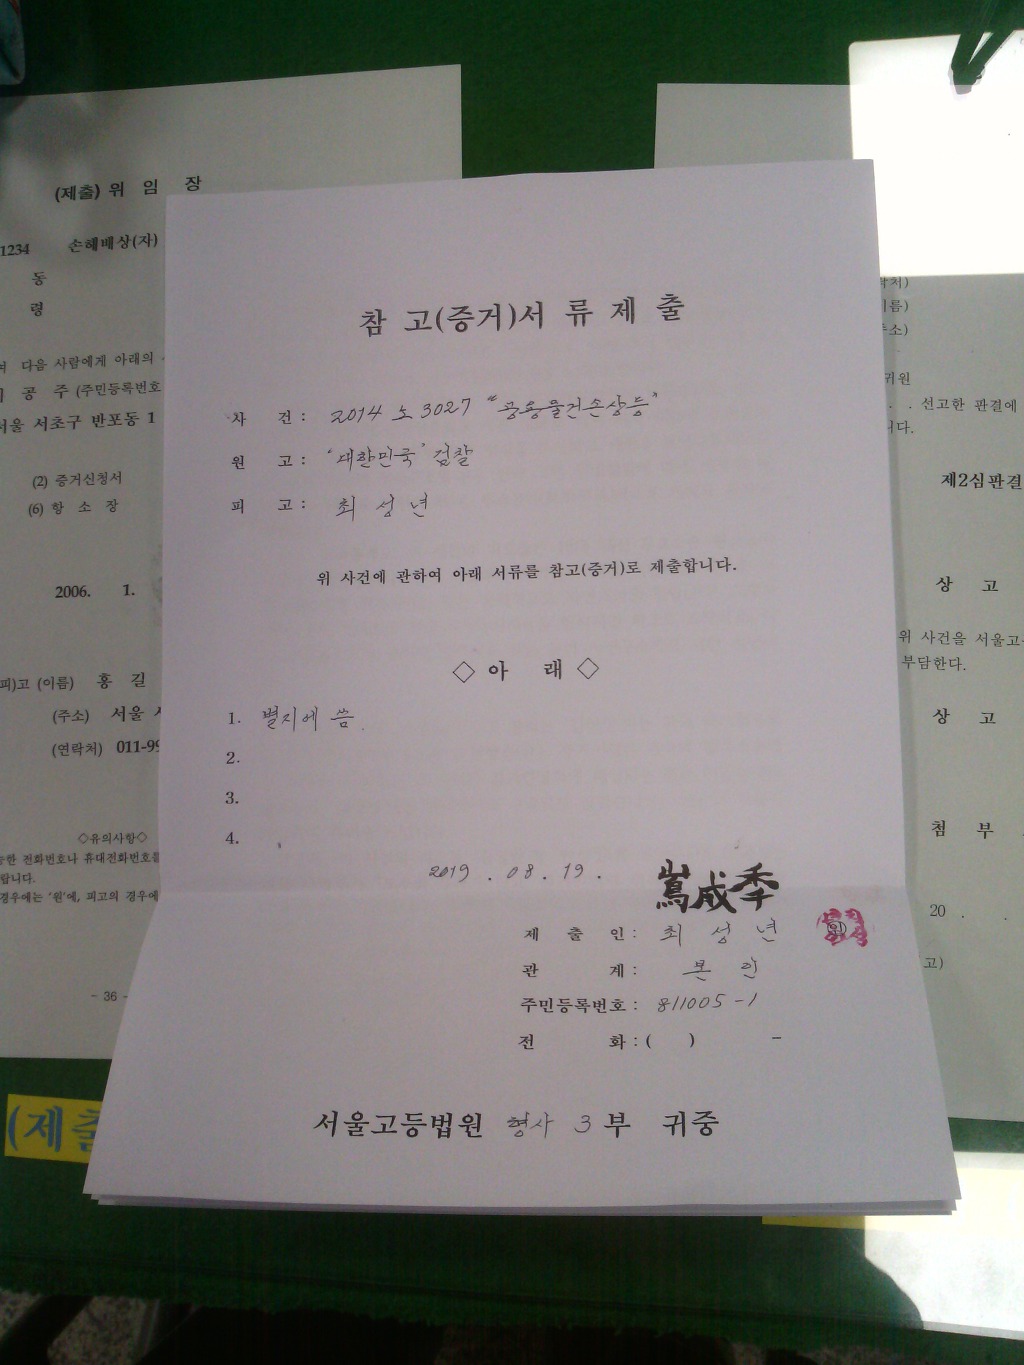 (제출) 위 임 장
1234 손해배상(자)
동
령
여 다음 사람에게 아래의
이 공 주 (주민등록번호
서울 서초구 반포동 1
(2) 증거신청서
(6) 항 소 장
2006. 1.
피)고 (이름) 홍 길
(주소) 서울 서
(연락처) 011-99
◇유의사항◇
능한 전화번호나 휴대전화번호를
랍니다.
경우에는 '원'에, 피고의 경우에
- 36 -
(제출
참 고(증거)서 류 제 출
차 건 : 2014 노 3027 "공용물건손상등"
원 고 : "대한민국" 검찰
피 고 : 최 성 년
위 사건에 관하여 아래 서류를 참고(증거)로 제출합니다.
◇ 아 래 ◇
1. 별지에 씀.
2.
3.
4.
2019 . 08 . 19 .
제 출 인 : 최 성 년
관 계 : 본 인
주민등록번호 : 811005 -1
전 화 : ( ) -
서울고등법원 형사 3 부 귀중
락처)
이름)
주소)
귀원
. . 선고한 판결에
니다.
제2심판결
상 고
위 사건을 서울고
부담한다.
상 고
첨 부
20 . .
고)